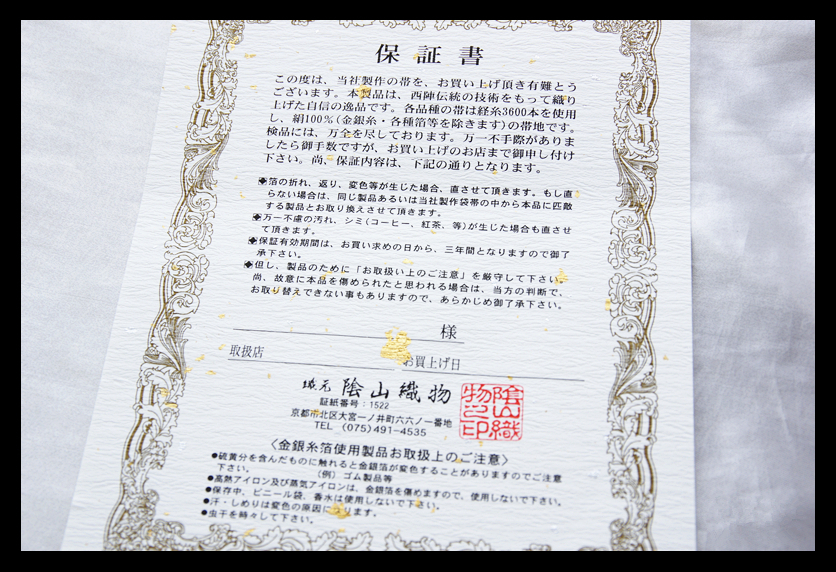 保証書
この度は、当社製作の帯を、お買い上げ頂き有難とう
ございます。本製品は、西陣伝統の技術をもって織り
上げた自信の逸品です。各品種の帯は経糸3600本を使用
し、絹100%(金銀糸・各種箔等を除きます)の帯地です。
検品には、万全を尽しております。万一不手際がありま
したら御手数ですが、お買い上げのお店まで御申し付け
下さい。尚、保証内容は、下記の通りとなります。
◆箔の折れ、返り、変色等が生じた場合、直させて頂きます。もし直
らない場合は、同じ製品あるいは当社製作袋帯の中から本品に匹敵
する製品とお取り換えさせて頂きます。
◆万一不慮の汚れ、シミ(コーヒー、紅茶、等)が生じた場合も直させ
て頂きます。
◆保証有効期間は、お買い求めの日から、三年間となりますので御了
承下さい。
◆但し、製品のために「お取扱い上のご注意」を厳守して下さい。
尚、故意に本品を傷められたと思われる場合は、当方の判断で、
お取り替えできない事もありますので、あらかじめ御了承下さい。
様
取扱店 お買上げ日
織元 陰山織物
陰山織物之印
証紙番号:1522
京都市北区大宮一ノ井町六六ノ一番地
TEL (075)491-4535
〈金銀糸箔使用製品お取扱上のご注意〉
●硫黄分を含んだものに触れると金銀箔が変色することがありますのでご注意
下さい。 (例)ゴム製品等
●高熱アイロン及び蒸気アイロンは、金銀箔を傷めますので、使用しないで下さい。
●保存中、ビニール袋、香水は使用しないで下さい。
●汗・しめりは変色の原因になります。
●虫干を時々して下さい。